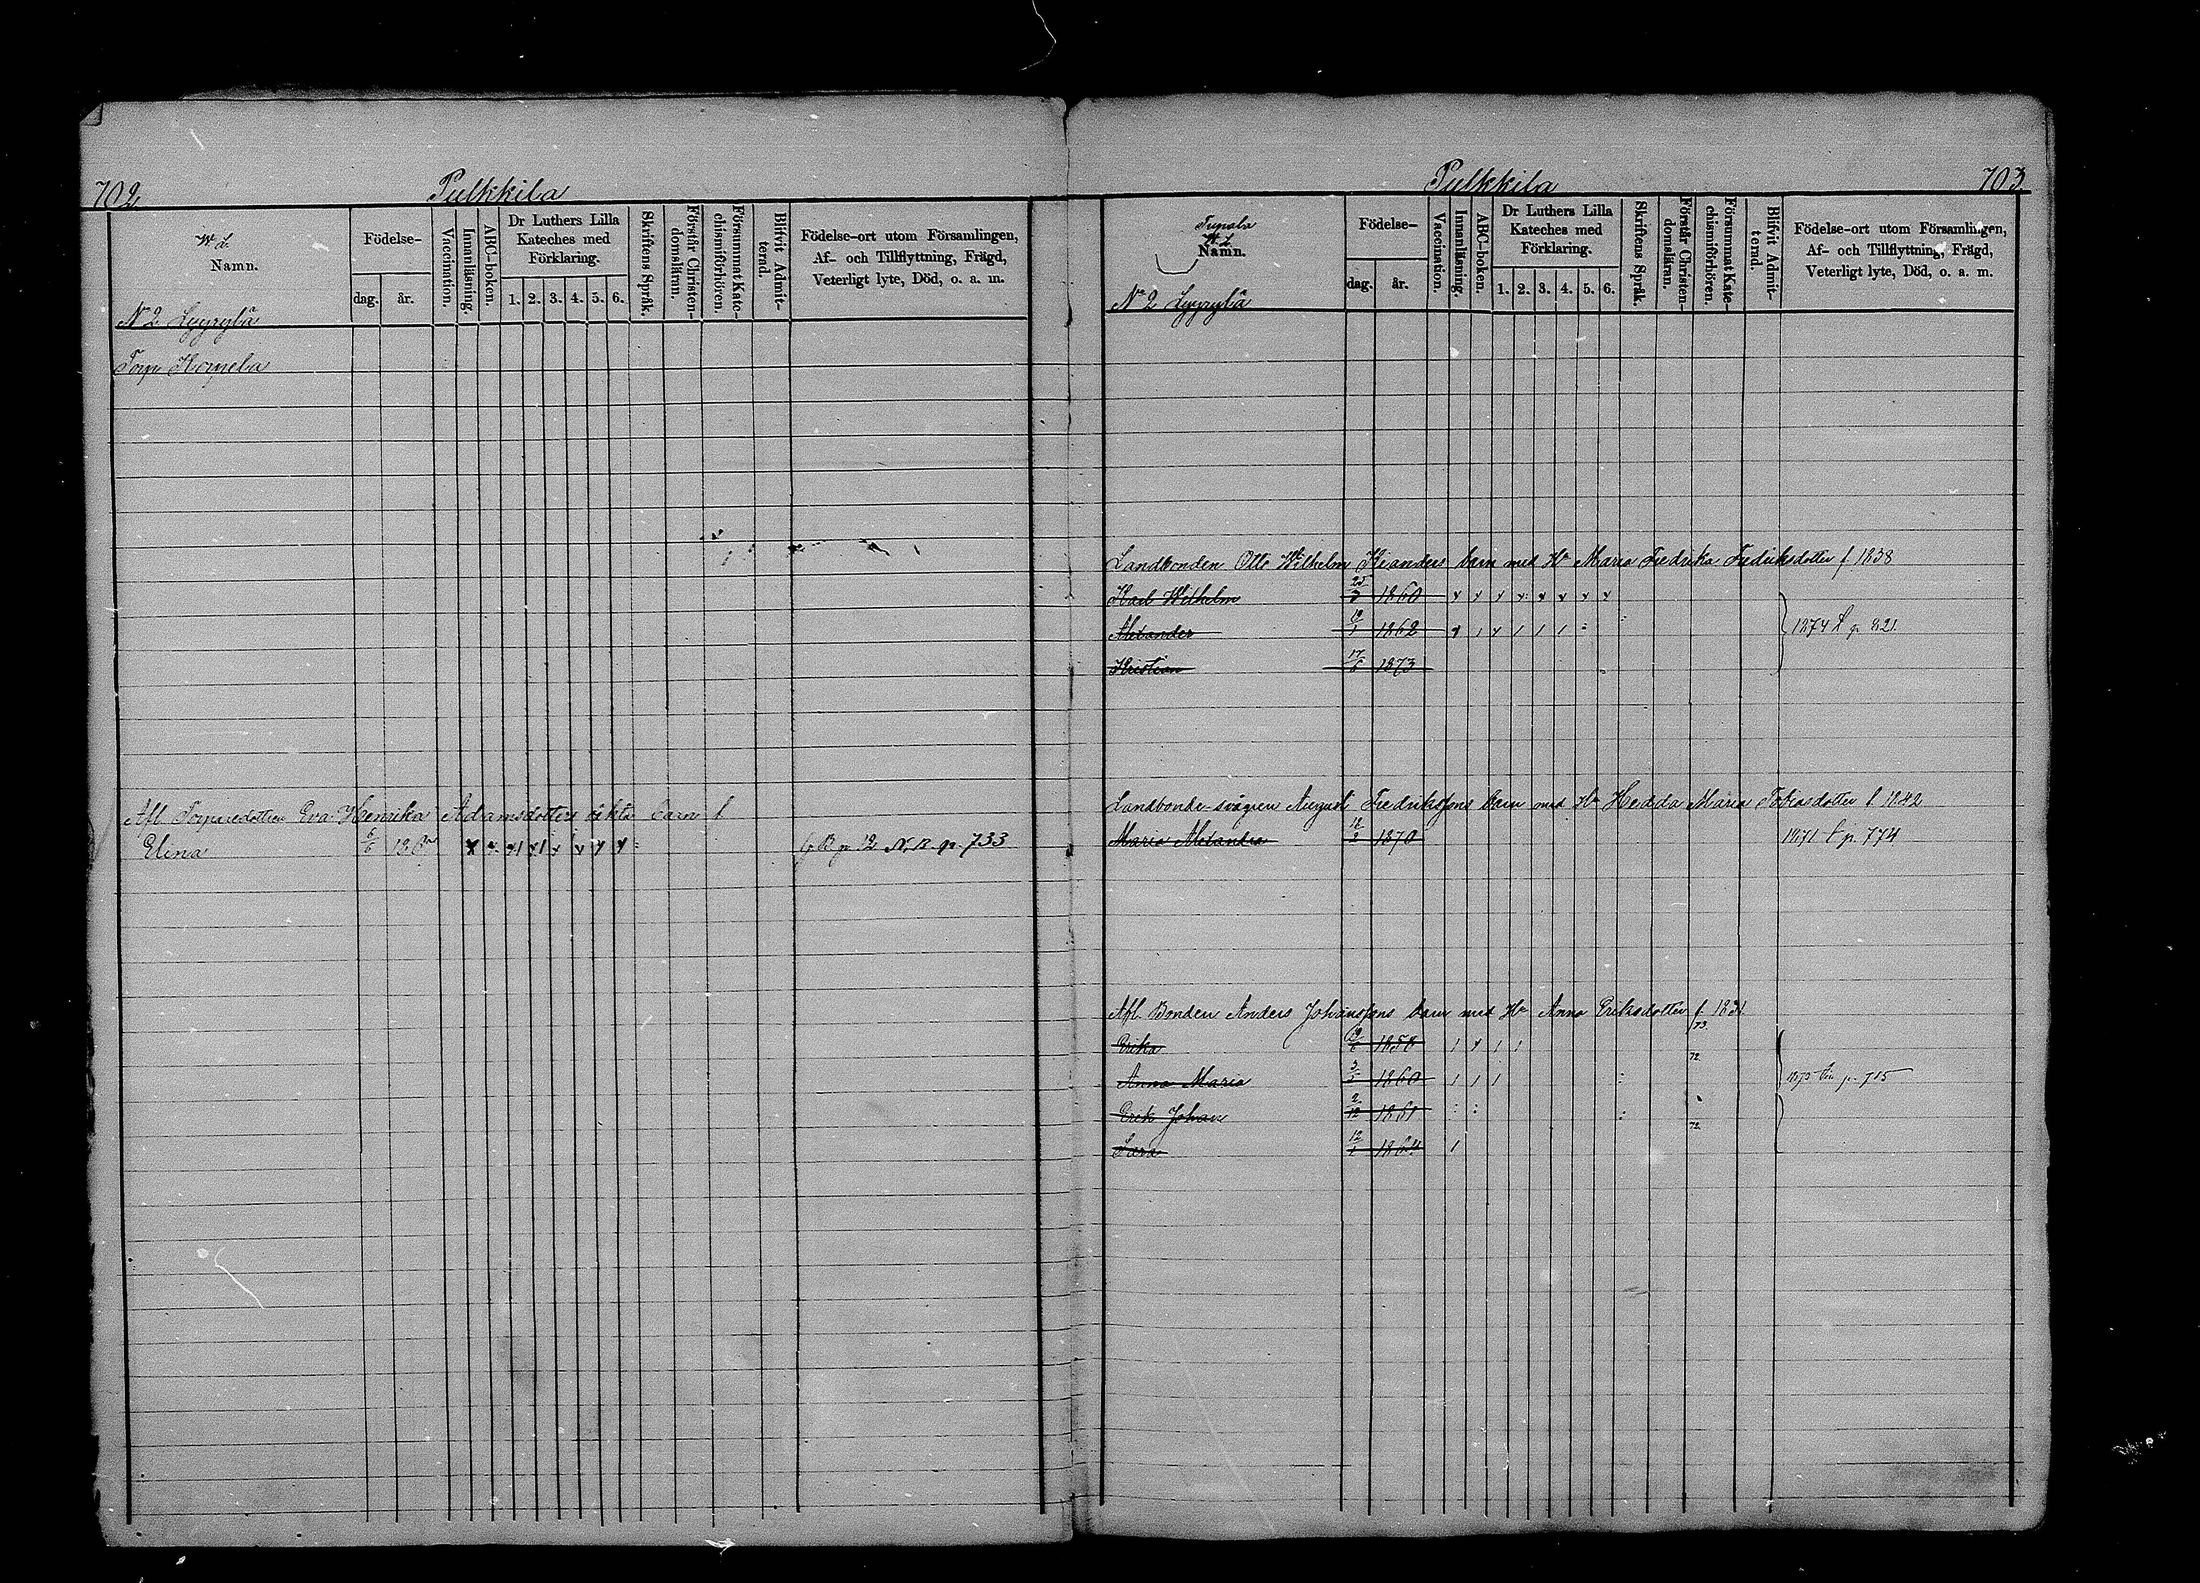 702
Pulkkila
W. L.
Namn.
Födelse-
dag.
år.
Vaccination.
Innanläsning.
ABC-boken.
Dr Luthers Lilla
Kateches med
Förklaring.
1. 2. 3. 4. 5. 6.
Skriftens Språk.
Förstår Christen-
domsläran.
Försummat Kate-
chismiförhören.
Blifvit Admit-
terad.
Födelse-ort utom Församlingen,
Af- och Tillflyttning, Frägd,
Veterligt lyte, Död, o. a. m.
N 2 Lyyrylä
Torp
Afl. Eva Henrika Adamsdotters oäkta barn
Elina p. 733
Pulkkila
703
W. L.
Namn.
Födelse-
dag.
år.
Vaccination.
Innanläsning.
ABC-boken.
Dr Luthers Lilla
Kateches med
Förklaring.
1. 2. 3. 4. 5. 6.
Skriftens Språk.
Förstår Christen-
domsläran.
Försummat Kate-
chismiförhören.
Blifvit Admit-
terad.
Födelse-ort utom Församlingen,
Af- och Tillflyttning, Frägd,
Veterligt lyte, Död, o. a. m.
No 2 Lyyrylä
Landbonden Otto Wilhelm Kianders barn med Ha Maria Fredrika Fredriksdotter f. 1838
Karl Wilhelm 1860
Alexander 1862 1874 p. 821
Kristian 17 1873
Landbonde-svågren August Fredrikssons barn med Ha Hedda Maria Tobiasdotter f. 1842
Maria Alexandra 1870 1871 p. 774
Afl. Bonden Anders Johanssons barn med Ha Anna Eriksdotter f. 1831
73.
Erika 1858
72.
Anna Maria 1860 p. 715
Erik Johan 2/12 1861
72.
Sara 12/1 1864